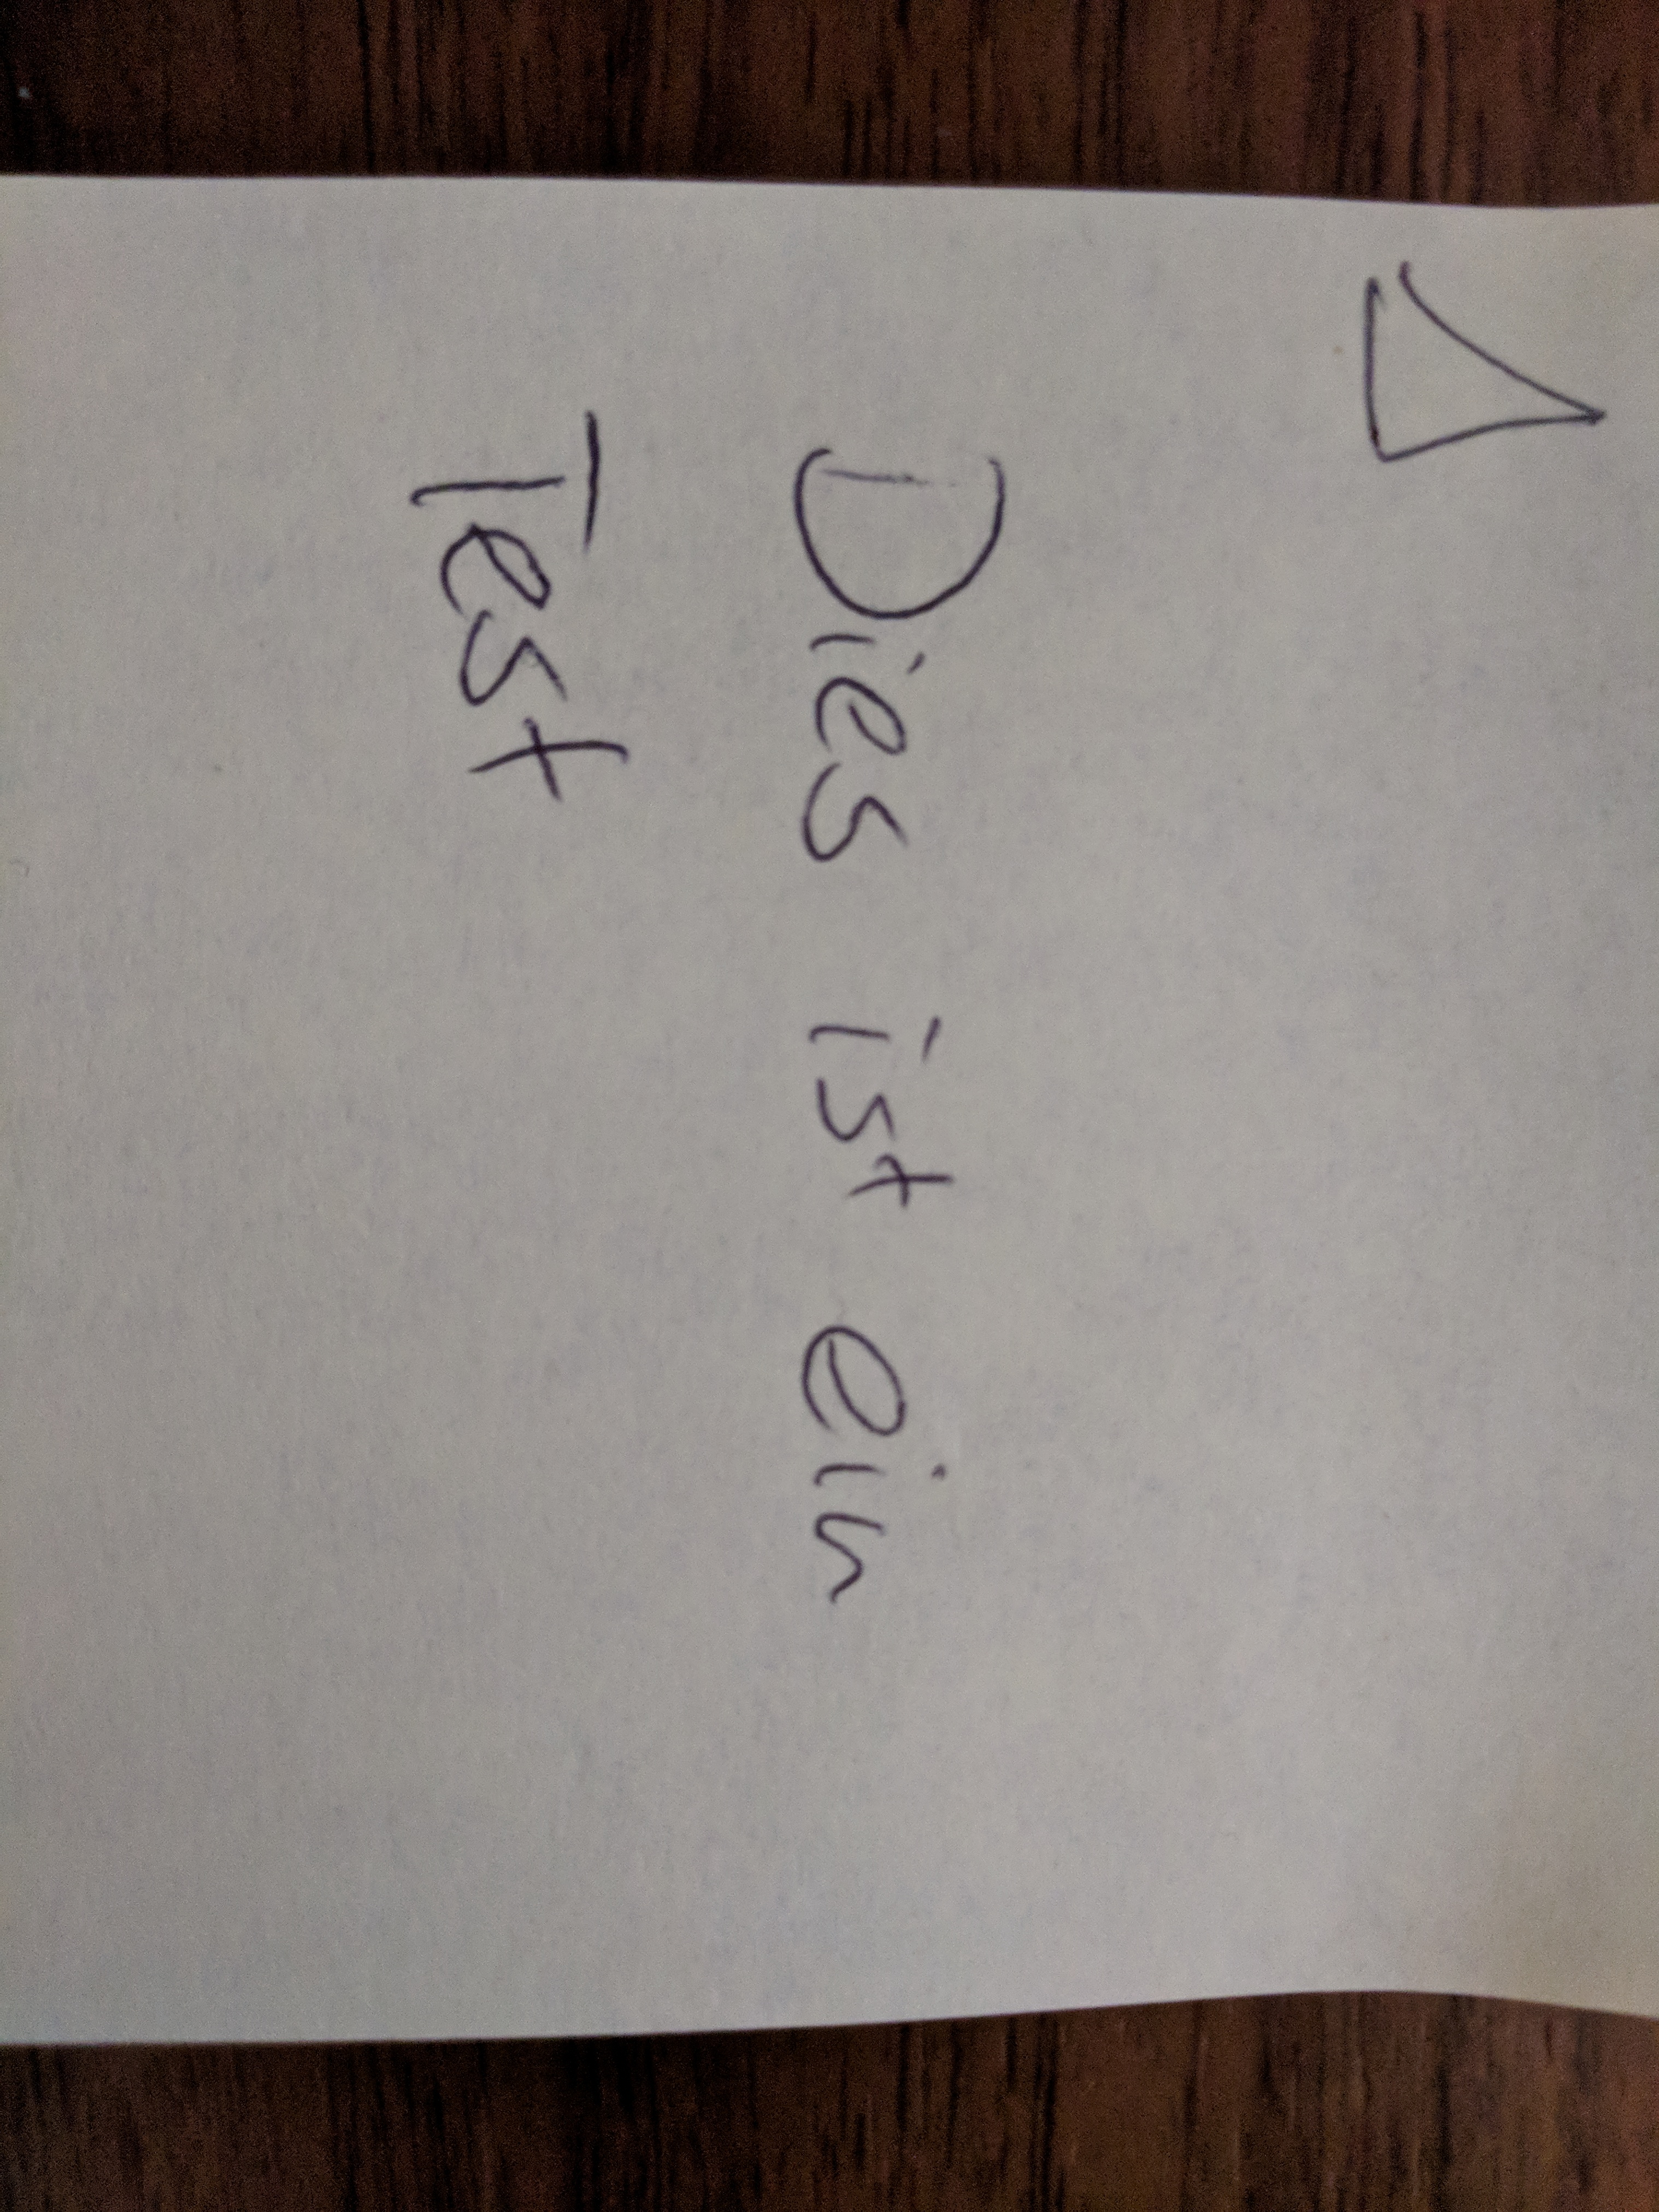 Dies ist ein
Test